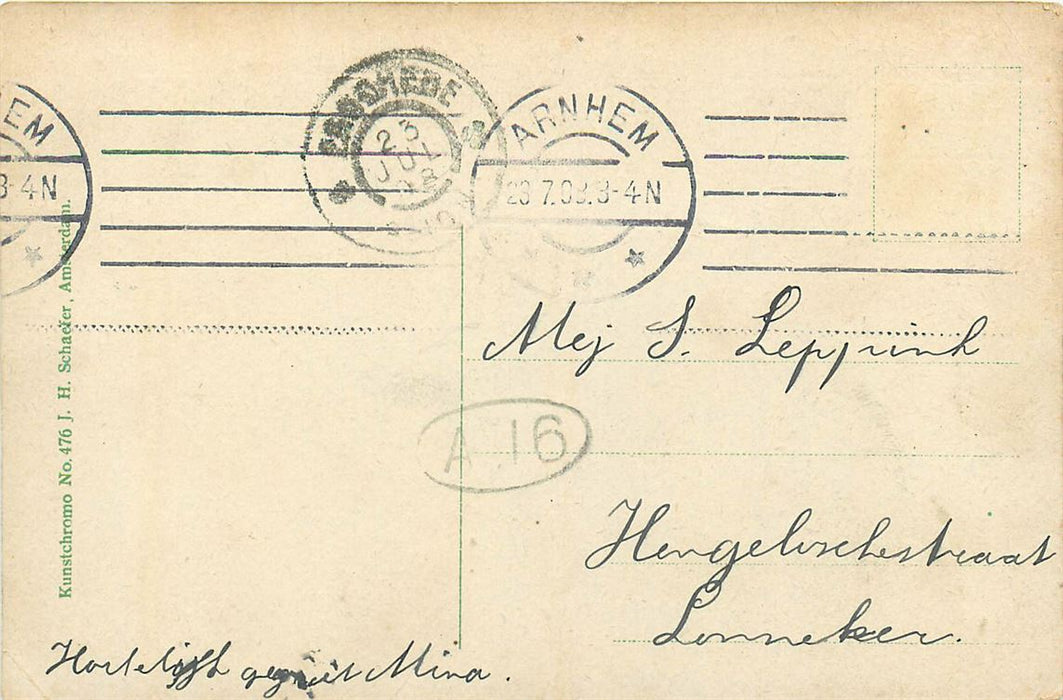 EM
3-4N
ENSCHEDE
23
JUL
ARNHEM
23.7.08.3-4N
Mej S. Leppink
A 16
Hengeloschestraat
Lonneker.
Hartelijk gegroet Mina.
Kunstchromo No. 476 J. H. Schaefer, Amsterdam.